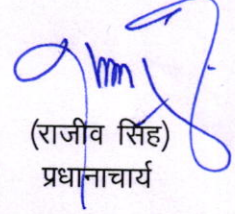 (राजीव सिंह)
प्रधानाचार्य